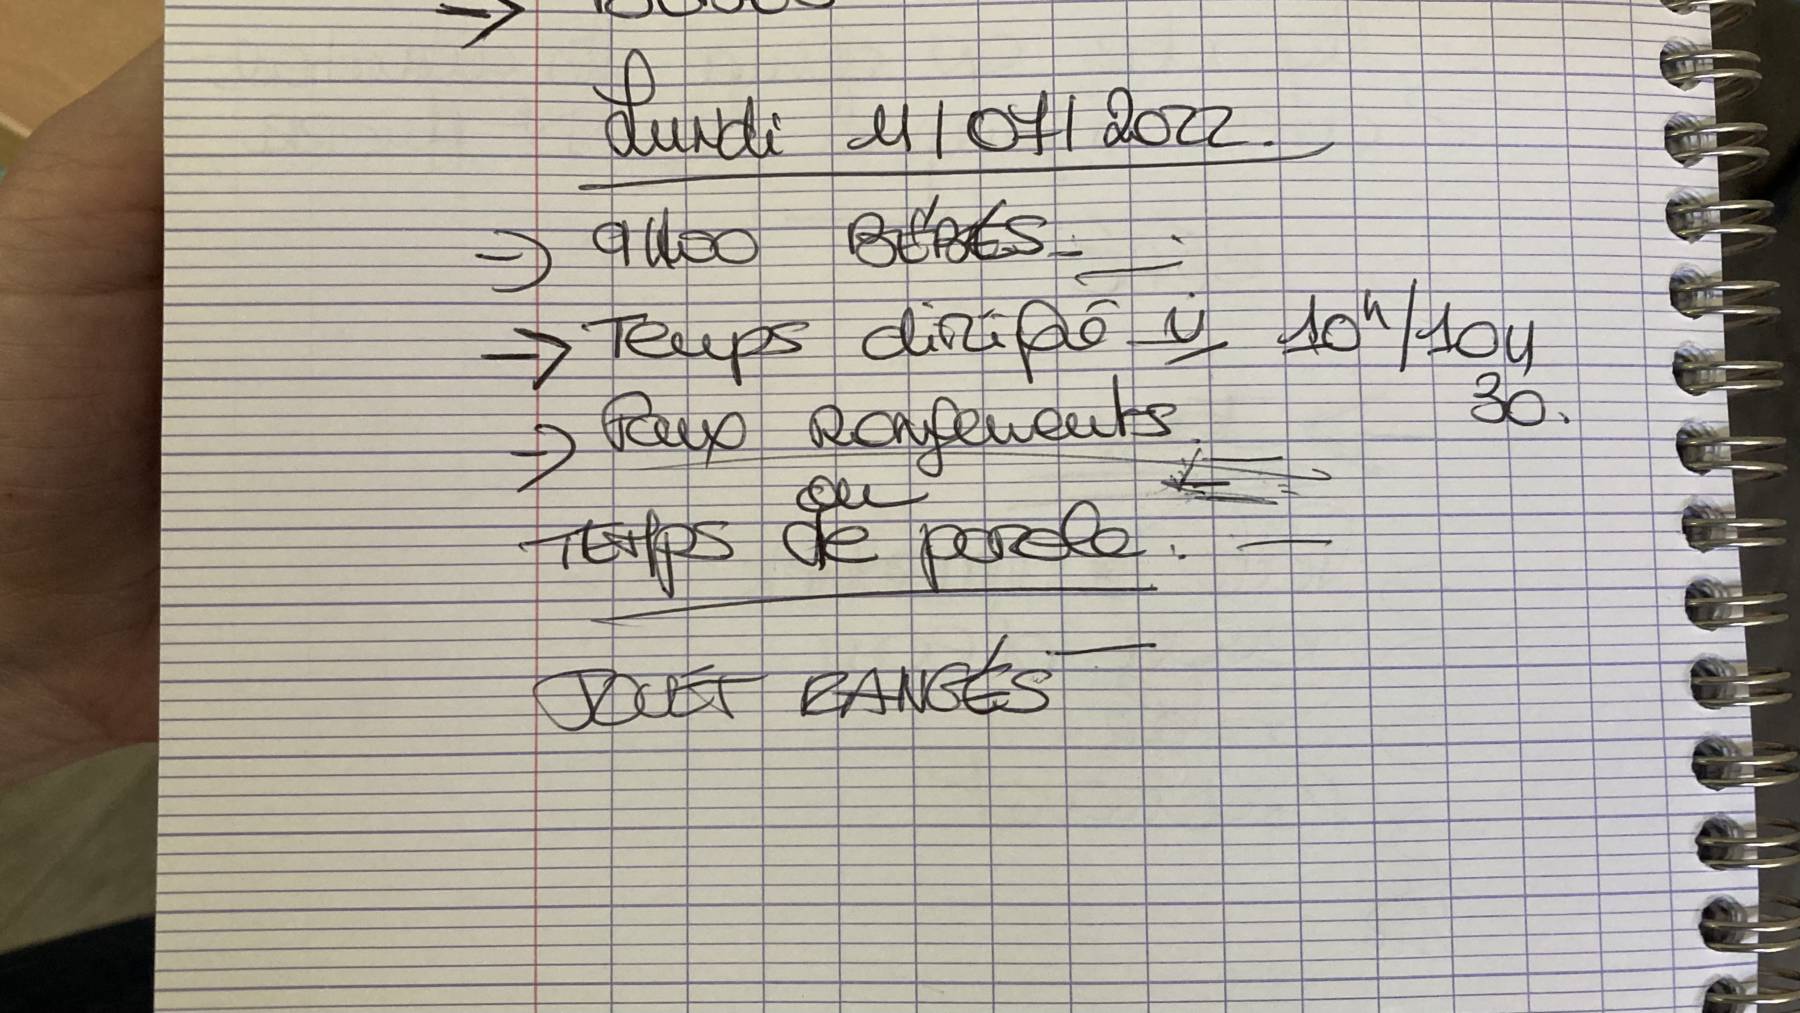 Lundi 11/07/2022.
9h00 BÉBÉS.
Temps dirigé 10h/10H
30.
Faux rangements
ou
Temps de parole.
JOUET RANGÉS